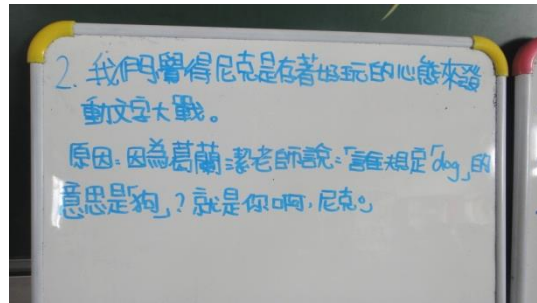 2. 我們覺得尼克是存著好玩的心態來發
動文字大戰。
原因：因為葛蘭潔老師說：「誰規定「dog」的
意思是「狗」？就是你啊，尼克。」